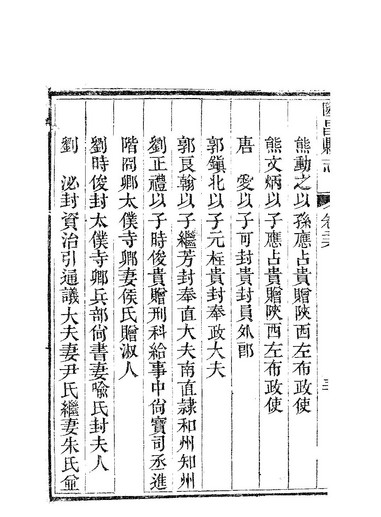 昌縣志
卷之
三
熊動之以孫應占貴贈陝西左布政使
熊文炳以子應占貴贈陝西左布政使
唐 愛以子可封貴封員外郎
郭鎭北以子元柱貴封奉政大夫
郭良翰以子繼芳封奉直大夫南直隷和州知州
劉正禮以子時俊貴贈刑科給事中尙寶司丞進
階冏卿太僕寺卿妻侯氏贈淑人
劉時俊封太僕寺卿兵部尙書妻喩氏封夫人
劉 泌封資治引通議大夫妻尹氏繼妻朱氏並